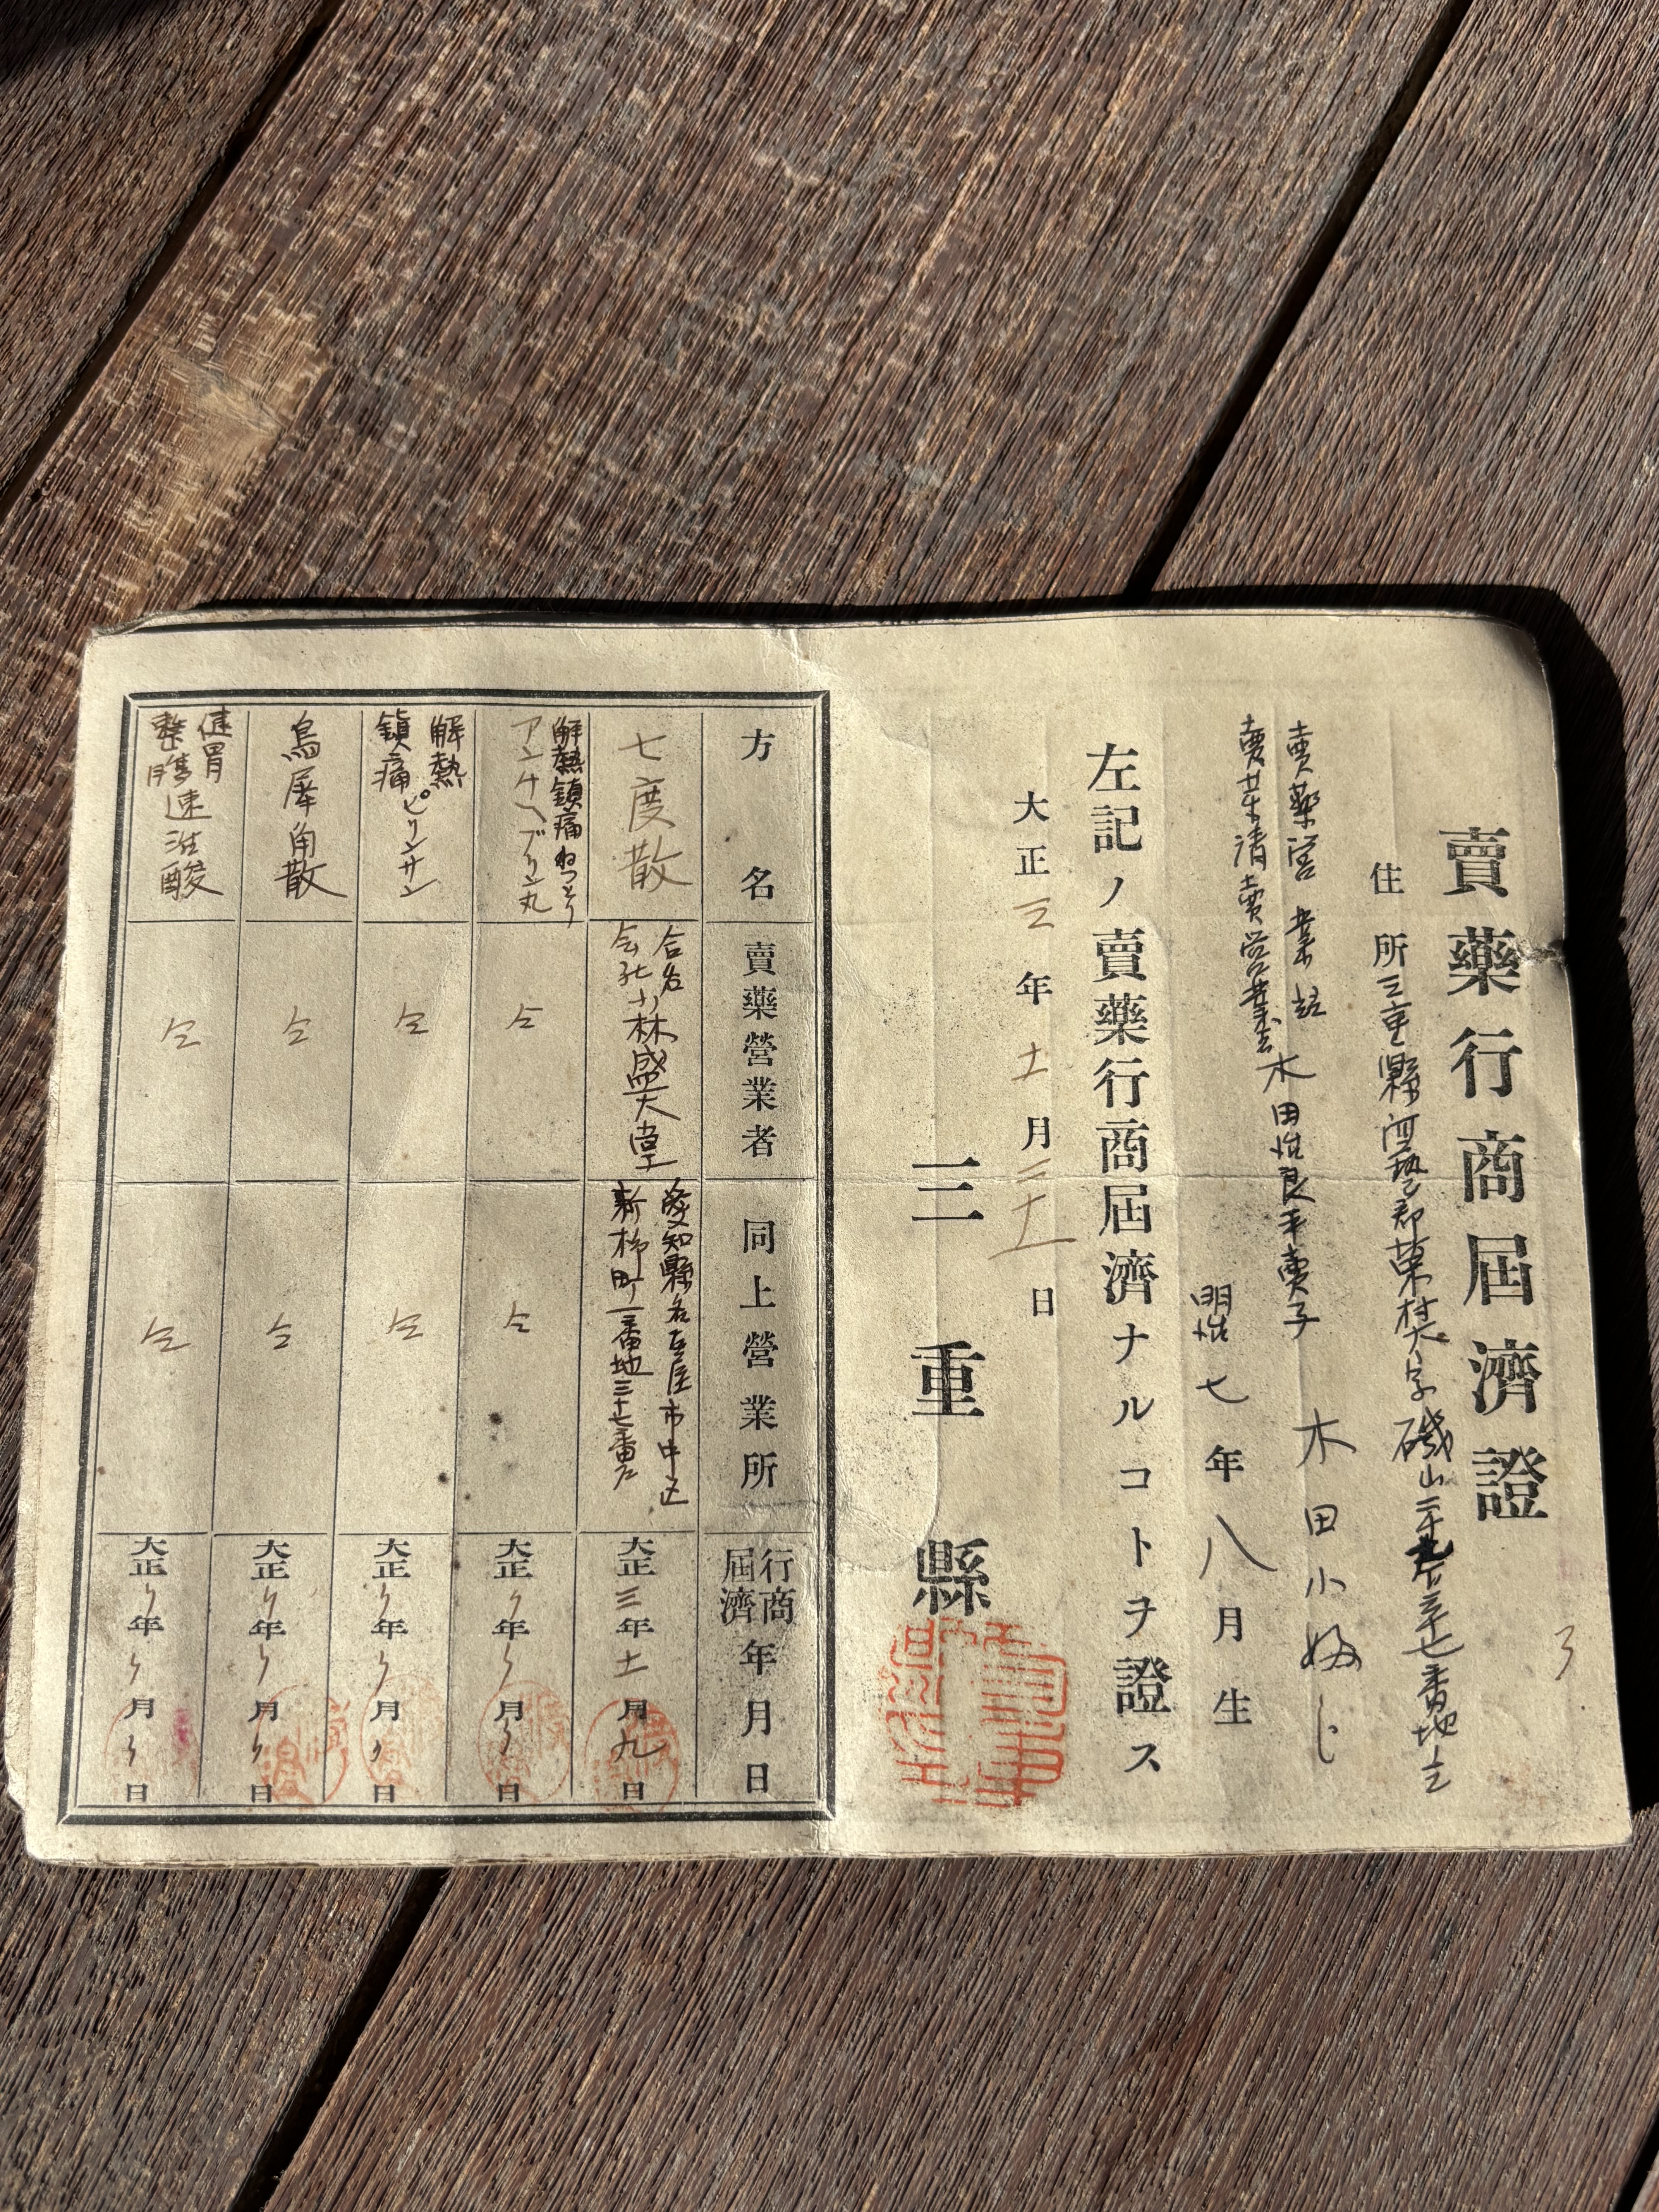 賣藥行商屆濟證
住所 三重縣河藝郡 村大字磯山 番地
賣藥營業
賣藥請賣營業者
木田 良平 妻子 木田小
明治七年八月生
左記ノ賣藥行商屆濟ナルコトヲ證ス
大正三年十一月 日
三重縣
方名 賣藥營業者 同上營業所 行商屆濟年月日
七度散 合名会社小林盛大堂 愛知縣名古屋市中区新柳町一番地三十七番戸 大正三年十一月九日
解熱鎮痛ねつとり アンチヘブリン丸 仝 仝 大正 〃年〃月〃日
解熱鎮痛 ピリンサン 仝 仝 大正〃年〃月〃日
烏犀角散 仝 仝 大正〃年〃月〃日
健胃整腸 速 酸 仝 仝 大正〃年〃月〃日